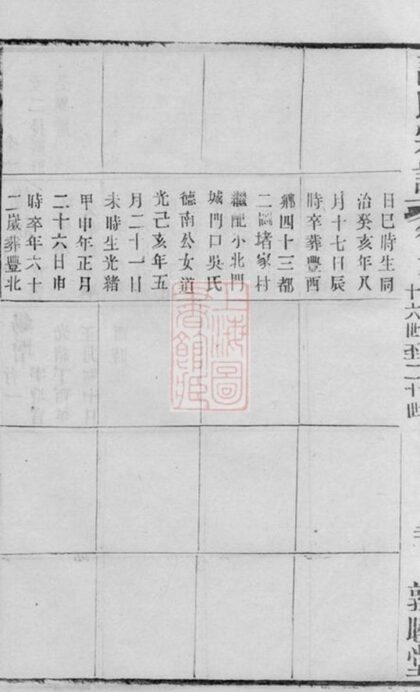 十六世至二十世
敦睦堂
日巳時生同
治癸亥年八
月十七日辰
時卒葬豐西
鄉四十三都
二圖堵家村
繼配小北門
城門口吳氏
德南公女道
光己亥年五
月二十一日
未時生光緒
甲申年正月
二十六日申
時卒年六十
二歲葬豐北
上海圖
書館藏